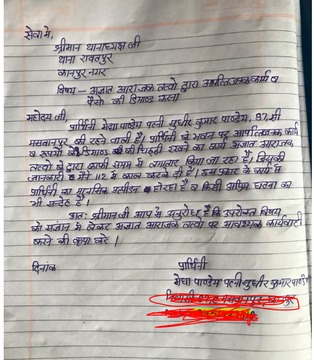 सेवा में,
श्रीमान थानाध्यक्ष जी
थाना रावतपुर
कानपुर नगर
विषय - अज्ञात अराजक तत्वों द्वारा आपत्तिजनक कार्य व
पैसो की डिमाण्ड करना
महोदय जी,
प्रार्थिनी मेघा पाण्डेय पत्नी सुधीर कुमार पाण्डेय, 87 सी
मसवानपुर की रहने वाली है। प्रार्थिनी के भवन पर आपत्तिजनक कार्य
व रुपयों की डिमाण्ड की चिट्ठी रखने का कार्य अज्ञात अराजक
तत्वों के द्वारा काफी समय से लगातार किया जा रहा है। जिसकी
जानकारी मैंने 112 में काल करके दी है। इस प्रकार के कार्य से
प्रार्थिनी का मानसिक उत्पीडन हो रहा है व किसी अप्रिय घटना का
भी अन्देह है।
अतः श्रीमान जी आप से अनुरोध है कि उपरोक्त विषय
को संज्ञान में लेकर अज्ञात अराजक तत्वों पर आवश्यक कार्यवाही
करने की कृपा करे।
दिनांक
प्रार्थिनी
मेघा पाण्डेय पत्नी सुधीर कुमार पाण्डेय